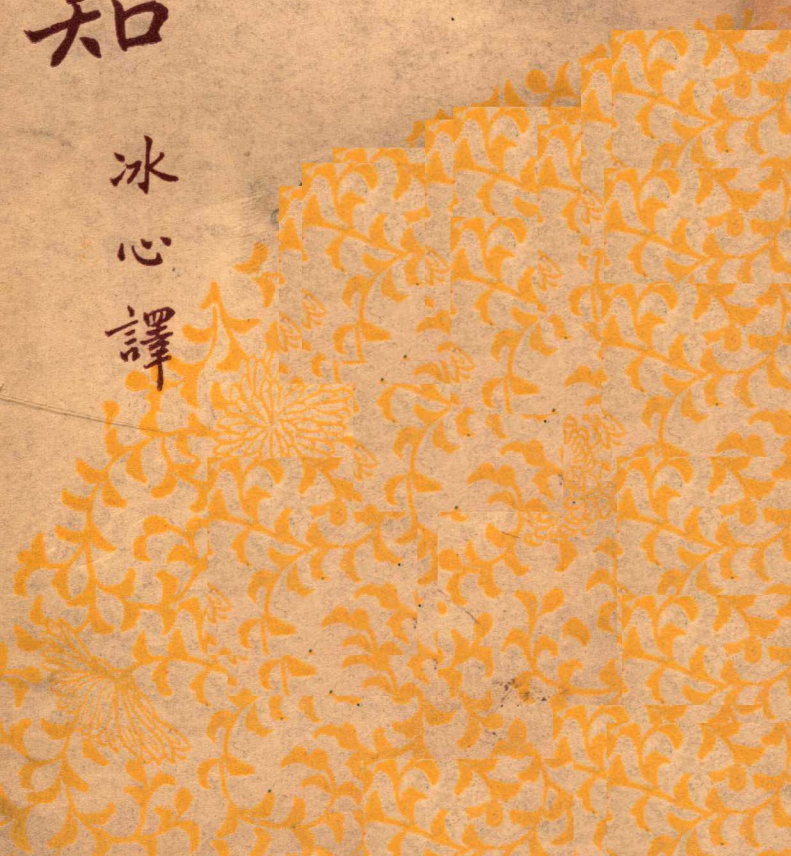 知
冰心譯